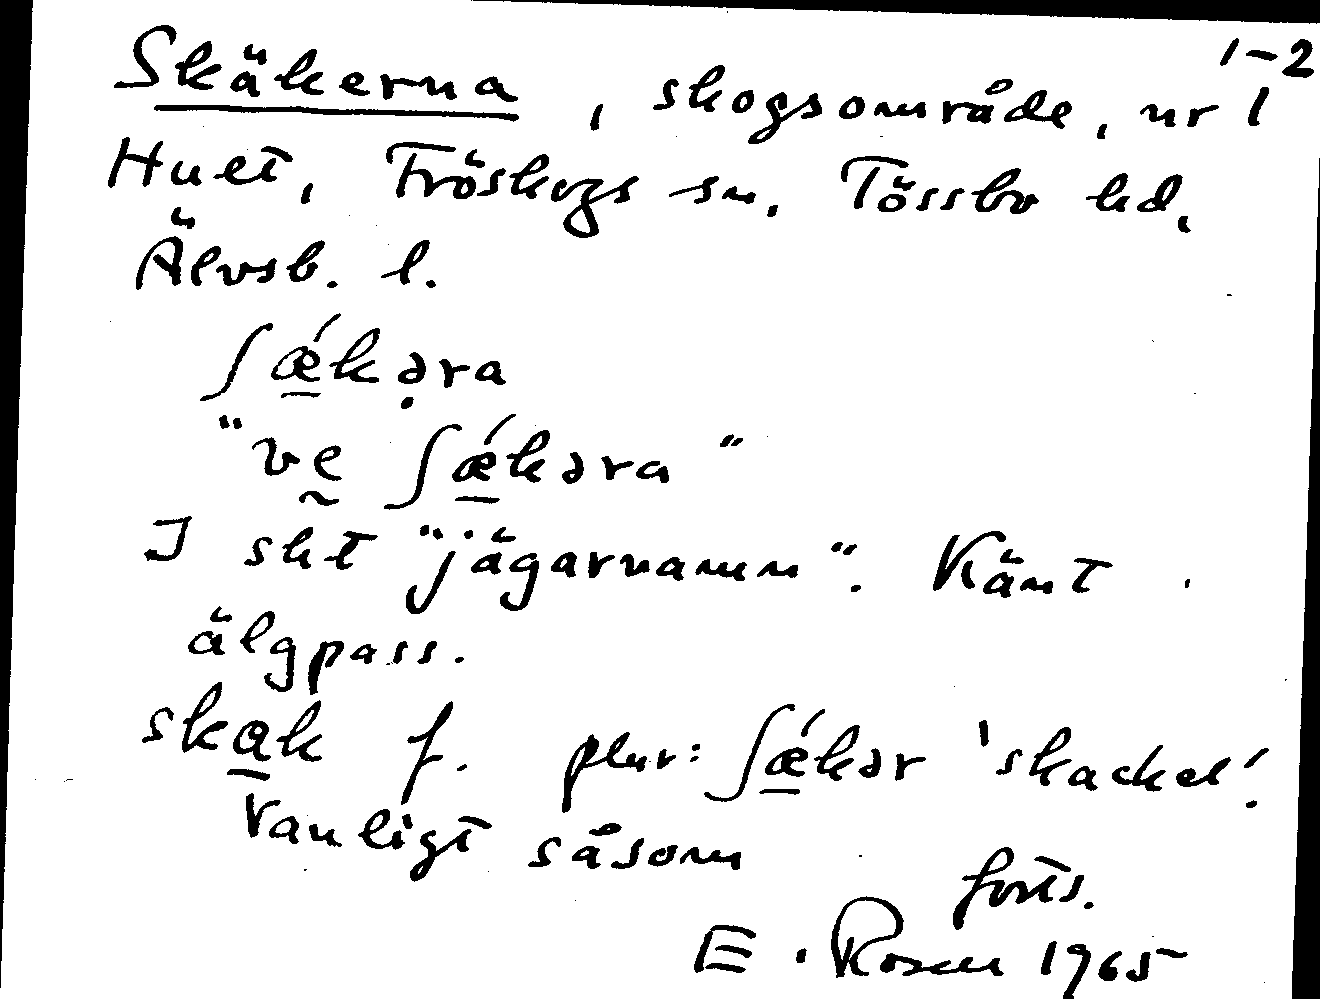 1-2
Skäkerna, skogsområde, nr 1
Huet, Fröskogs sn. Tössbo hd.
Älvsb. l.
ʃǽ̲kə̣ra
"vḛ ʃǽ̲kəra"
I sht "jägarnamn". Känt
älgpass.
ska̲k f. plur: ʃǽ̲kər 'skackel'.
Vanligt såsom
forts.
E. Rosen 1965